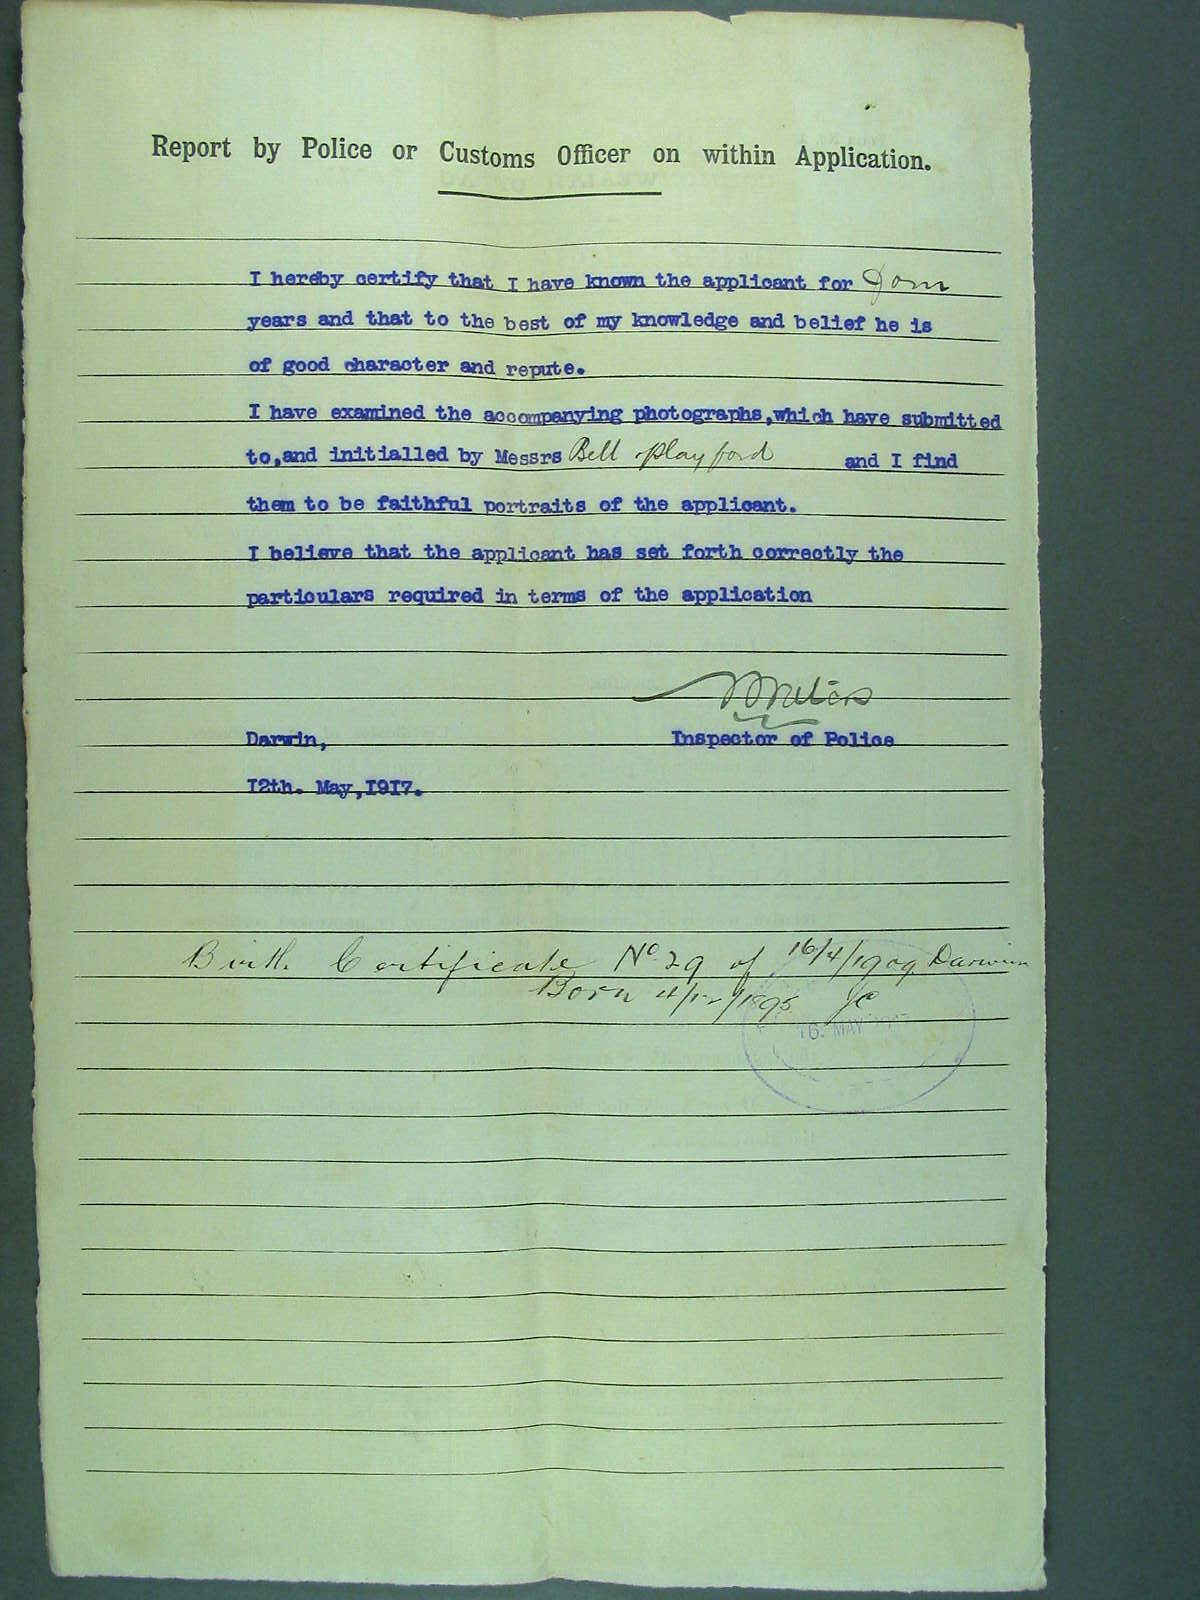 Report by Police or Customs Officer on within Application.
I hereby certify that I have known the applicant for
years and that to the best of my knowledge and belief he is
of good character and repute.
I have examined the accompanying photographs,which have submitted
to,and initialled by Messrs Bell Playford and I find
them to be faithful portraits of the applicant.
I believe that the applicant has set forth correctly the
particulars required in terms of the application
Inspector of Police
Darwin,
12th. May,1917.
Birth Certificate No 29 of 16/4/1909 Darwin
Born 4/12/1895
MAY